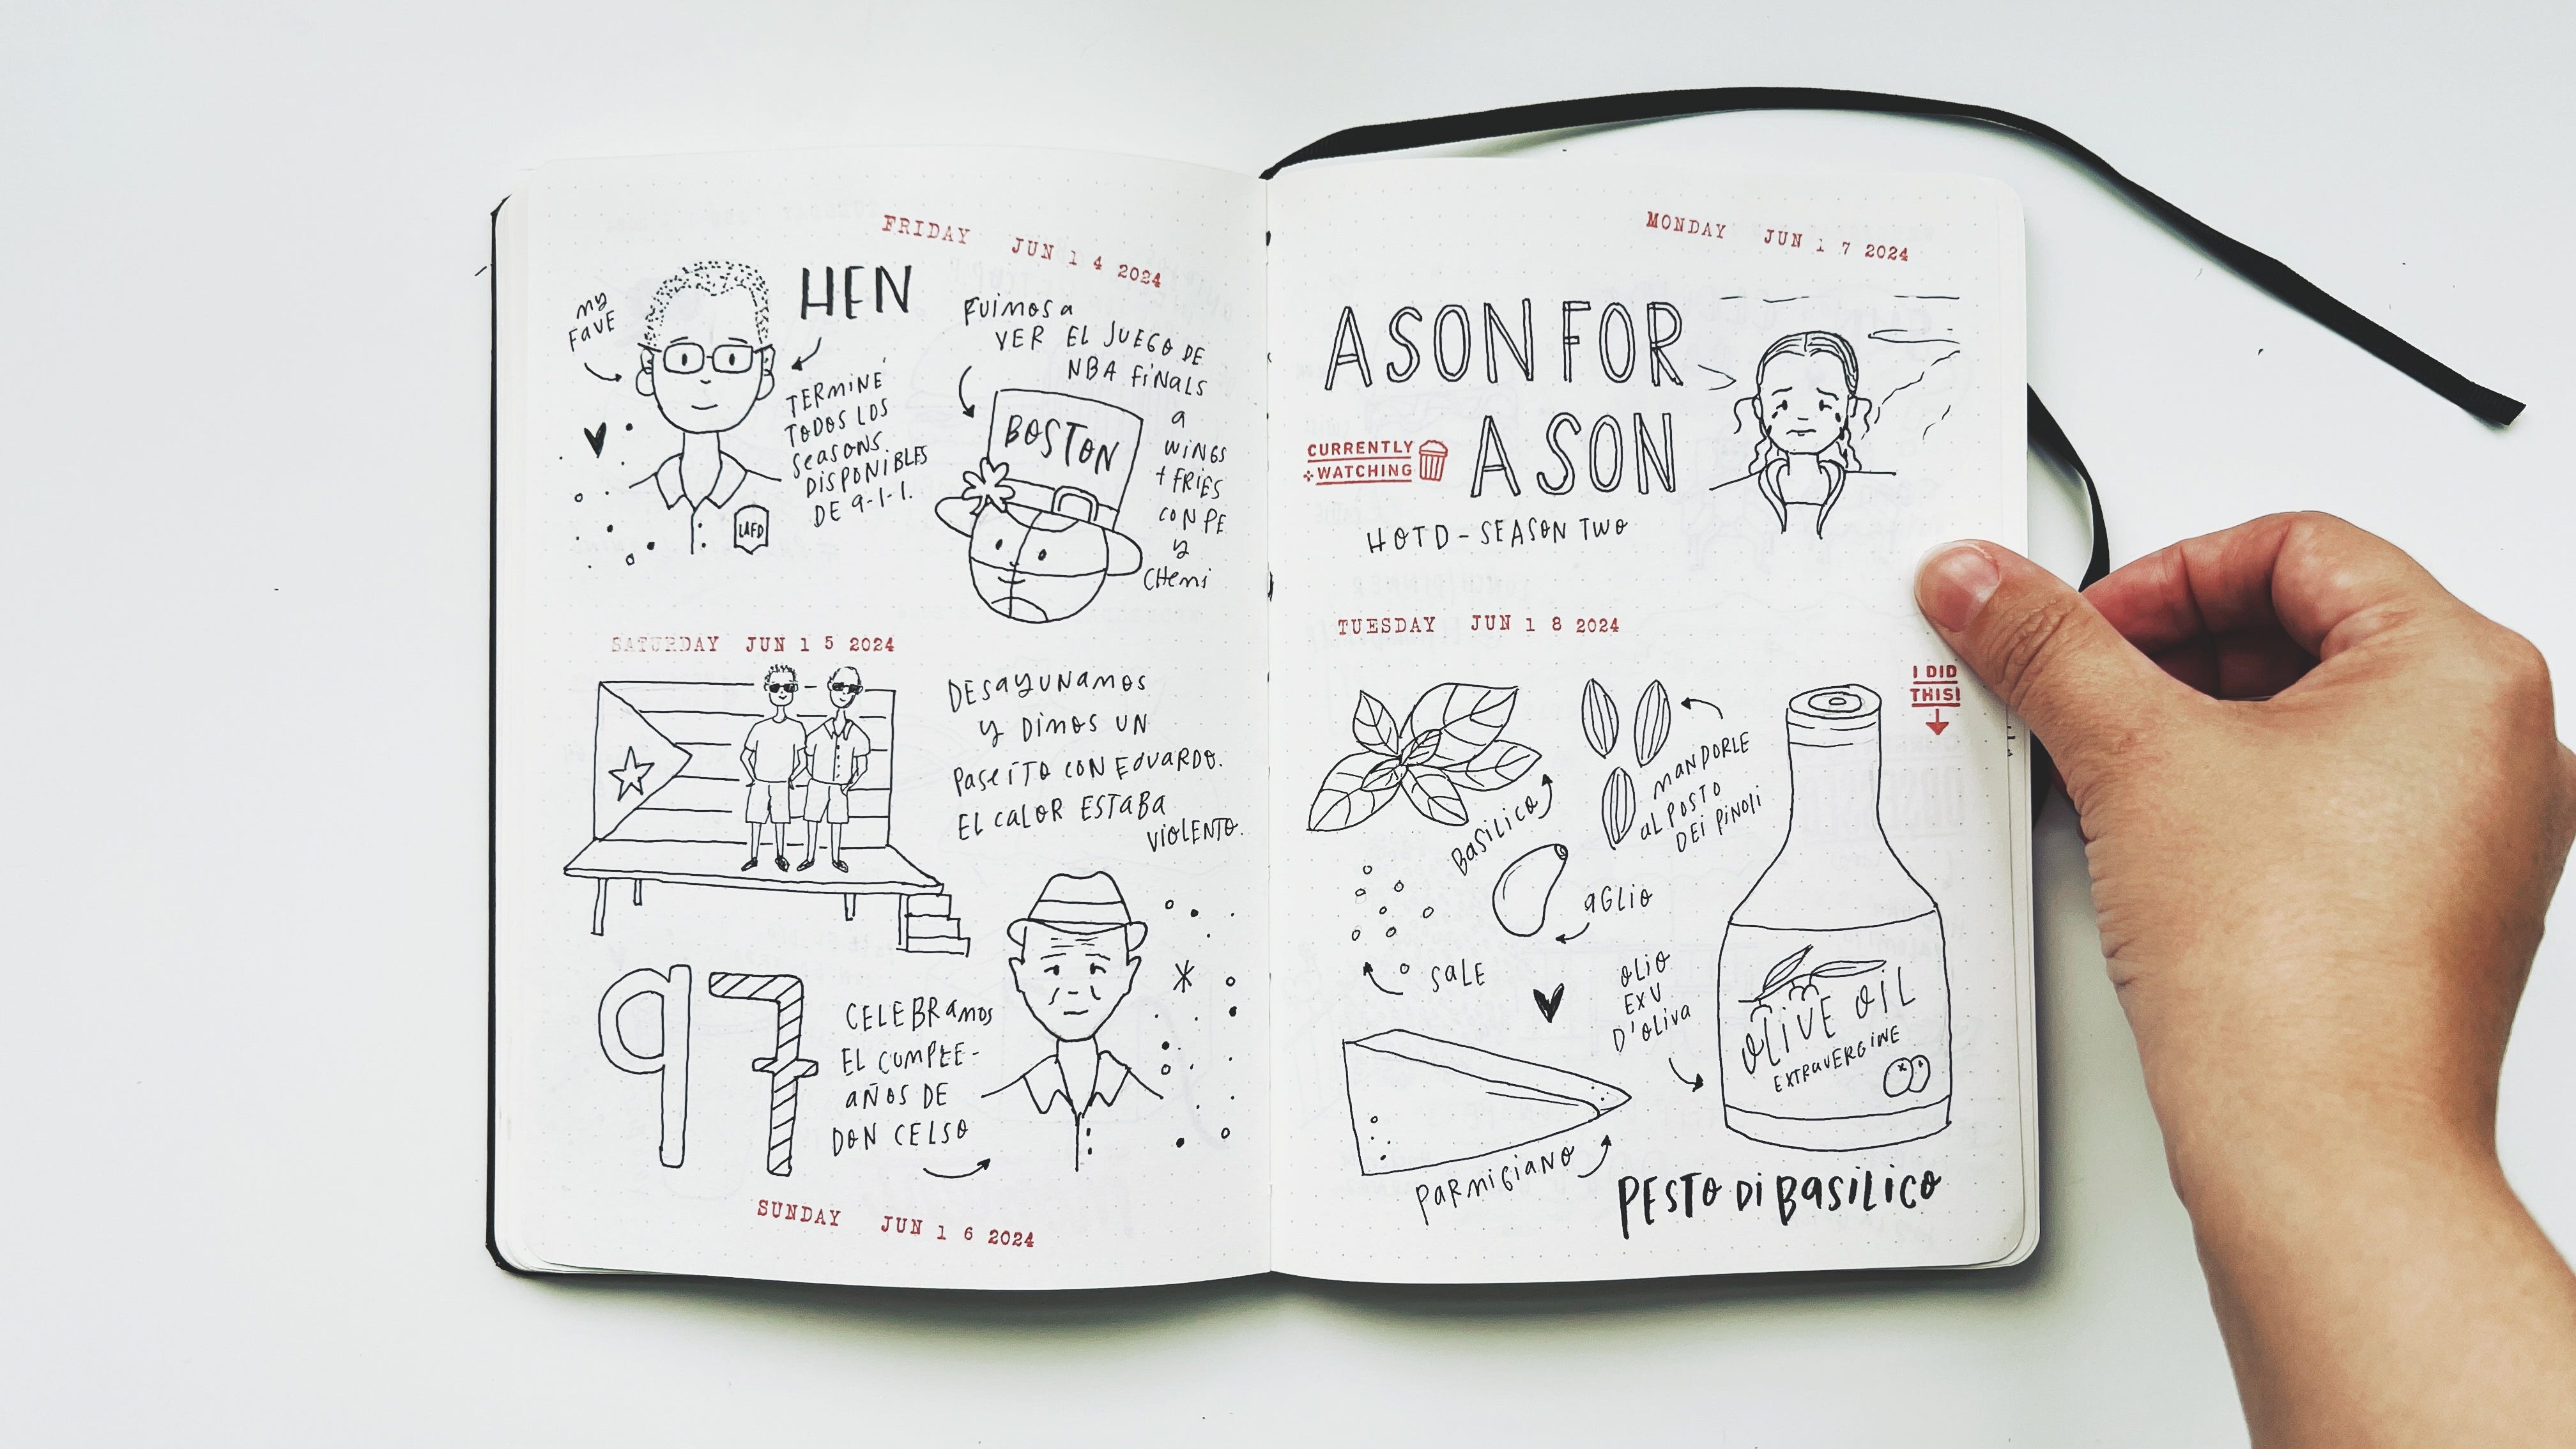 FRIDAY JUN 14 2024
my
FAVE
HEN
TERMINÉ
TODOS LOS
SEASONS
DISPONIBLES
DE 9-1-1.
LAFD
FUIMOS A
VER EL JUEGO DE
NBA FINALS
a
WINGS
+ FRIES
CON PE
y
CHEMI
BOSTON
SATURDAY JUN 15 2024
DESAYUNAMOS
y DIMOS UN
PASEITO CON EDUARDO.
EL CALOR ESTABA
VIOLENTO.
97
CELEBRAMOS
EL CUMPLE-
AÑOS DE
DON CELSO
SUNDAY JUN 16 2024
MONDAY JUN 17 2024
A SON FOR
A SON
CURRENTLY
WATCHING
HOTD - SEASON TWO
TUESDAY JUN 18 2024
I DID
THIS!
BASILICO
MANDORLE
AL POSTO
DEI PINOLI
AGLIO
SALE
OLIO
EXV
D'OLIVA
OLIVE OIL
EXTRAVERGINE
PARMIGIANO
PESTO DI BASILICO